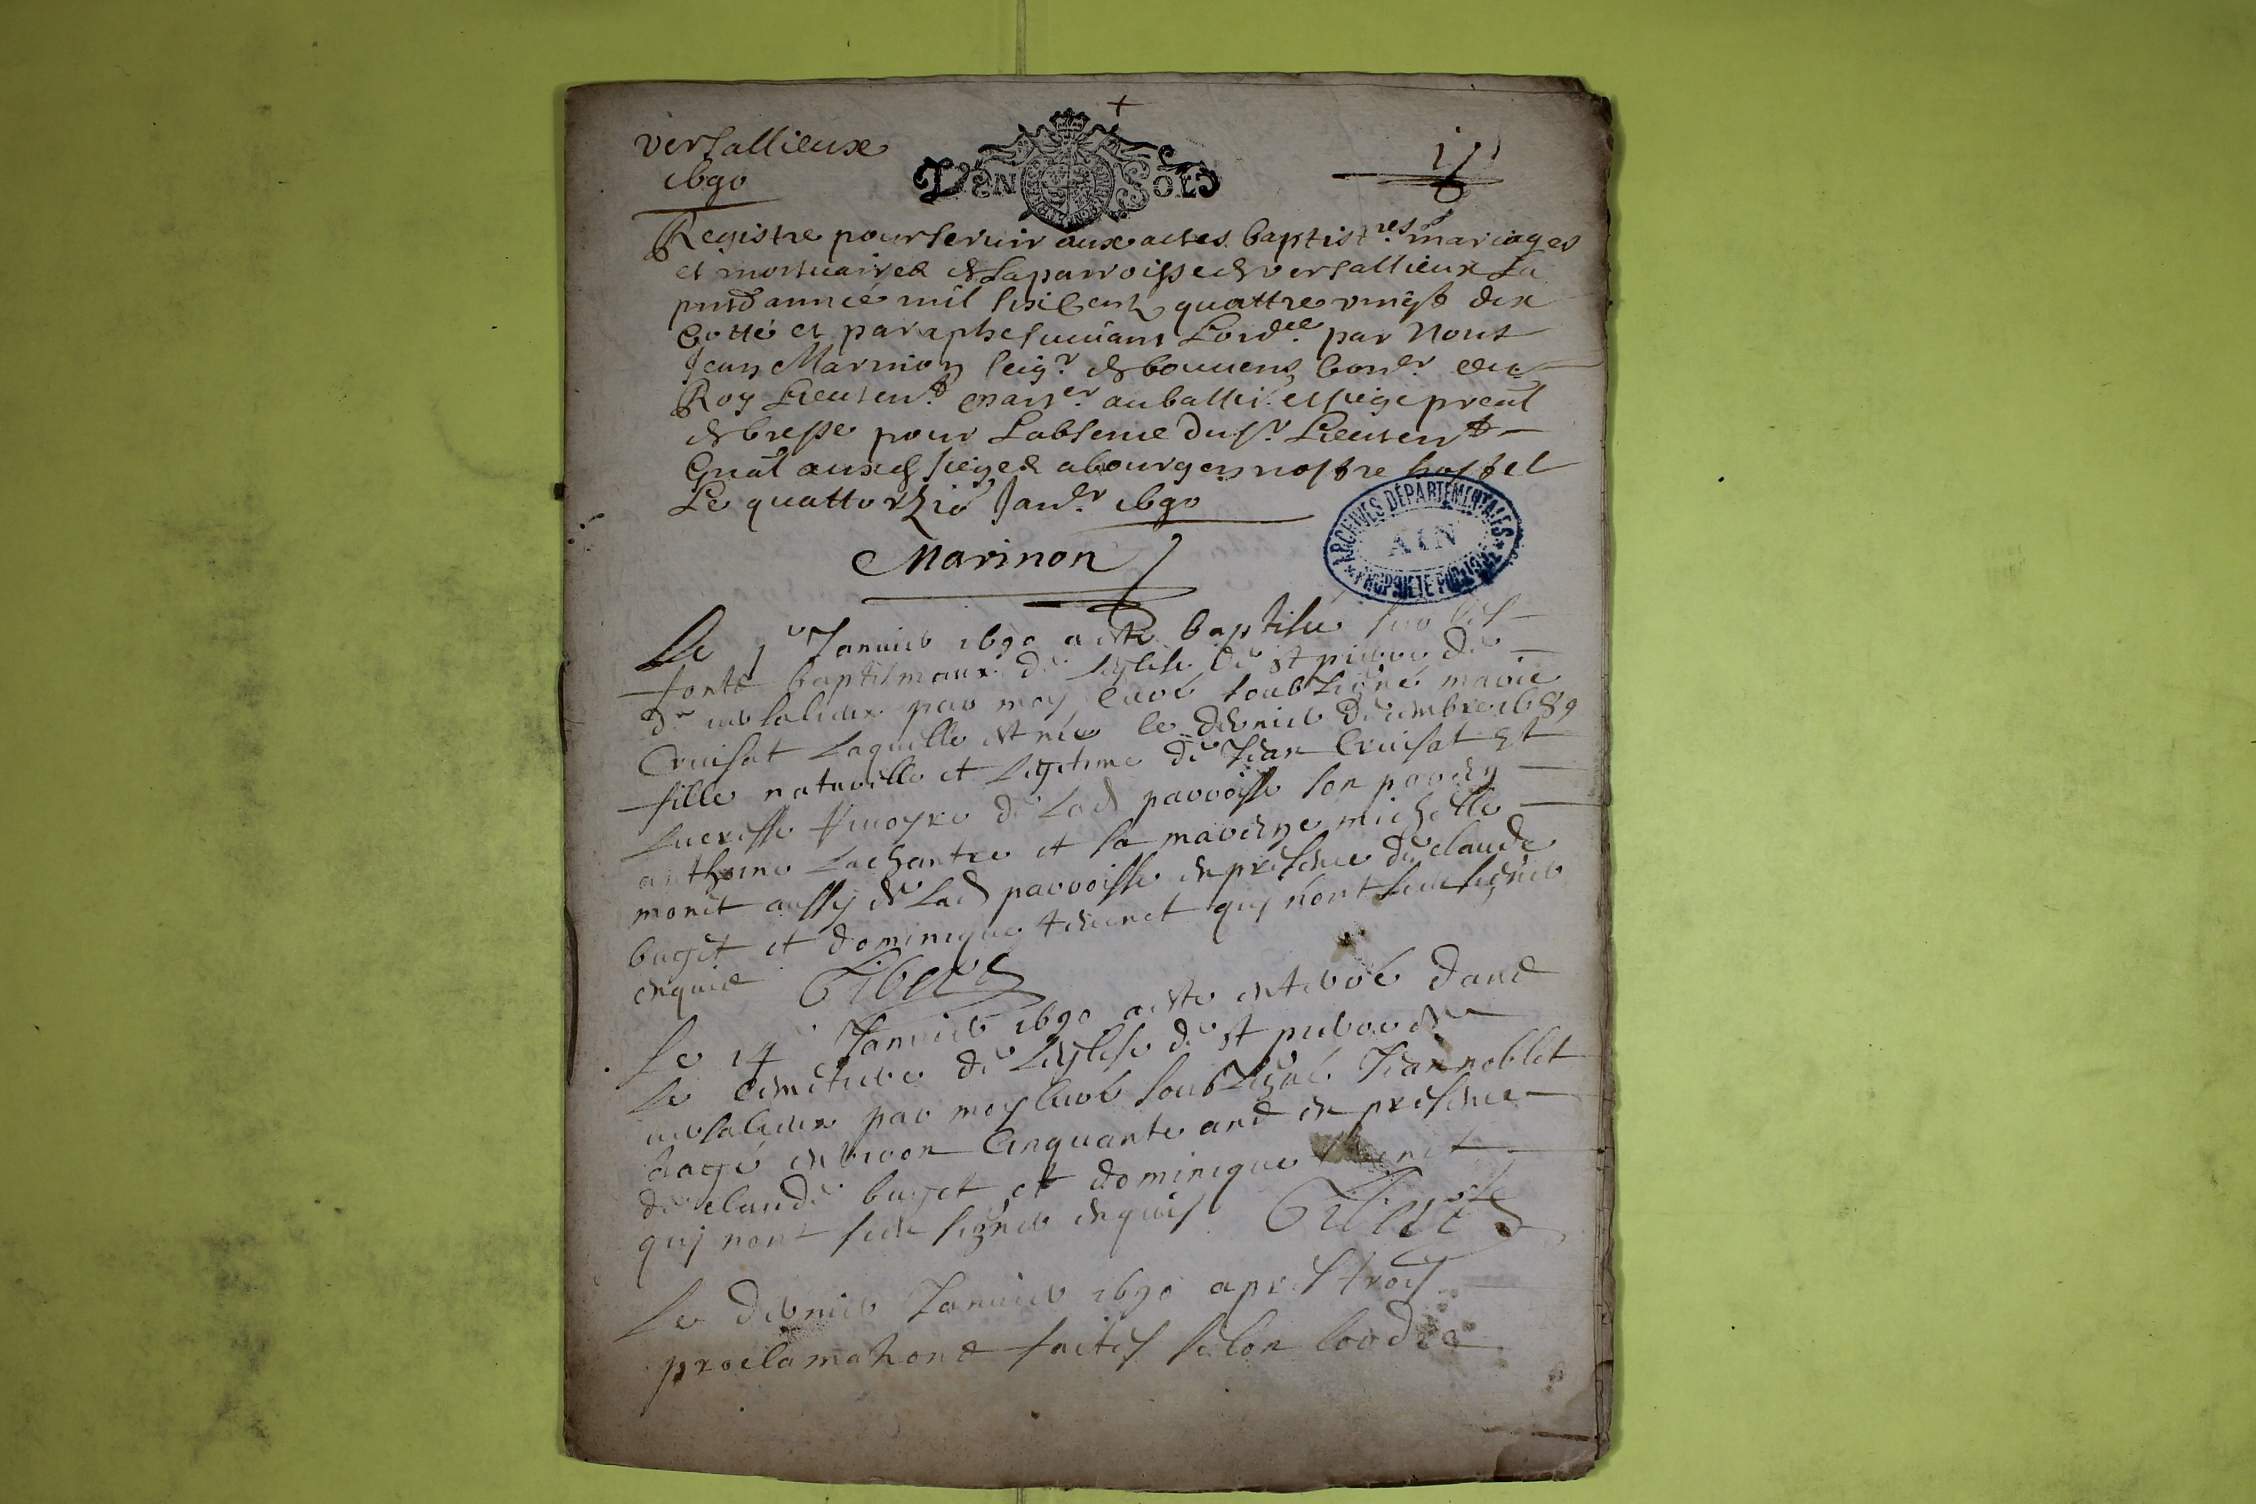 versallieux
1690
DEN SOLS
Registre pour servir aux actes baptistres mariages
et mortuaires de la parroisse de versallieux La
pnte année mil six cent quattre vingt dix
Cotté et paraphe suivant Lordce par Nous
Jean Marinon seigr de bouvens Conser du
Roy Lieutent au baillie et siege preal
de bresse pour Labsence du sr Lieutent
Gnal auxd sieges a bourg en nostre hostel
Le quattorzie Janer 1690
Marinon
Le 1 Janvier 1690 a este baptisé sur les
fonts baptismaux de leglise de st pierre de
de versalieux par moy curé soubsigné marie
Cruisat laquelle est née le dernier decembre 1689
fille naturelle et legitime de Jean Cruisat et
Lucresse de lad parroisse son parein
anthoine Lachantre et sa mareine michelle
monet aussy de lad parroisse en presence de claude
buget et dominique qui nont sceu signer
enquis Gibert
Le 14 Janvier 1690 a este enterré dans
le cimetiere de Leglise de st pierre de
versalieux par moy curé soubsigné Jean noblet
aagé environ cinquante ans en presence
de claude buget et dominique
qui nont sceu signer enquis Gibert
Le dernier Janvier 1690 apres trois
proclamations faites selon lordre
ARCHIVES DÉPARTEMENTALES
AIN
PROPRIETE PUBLIQUE